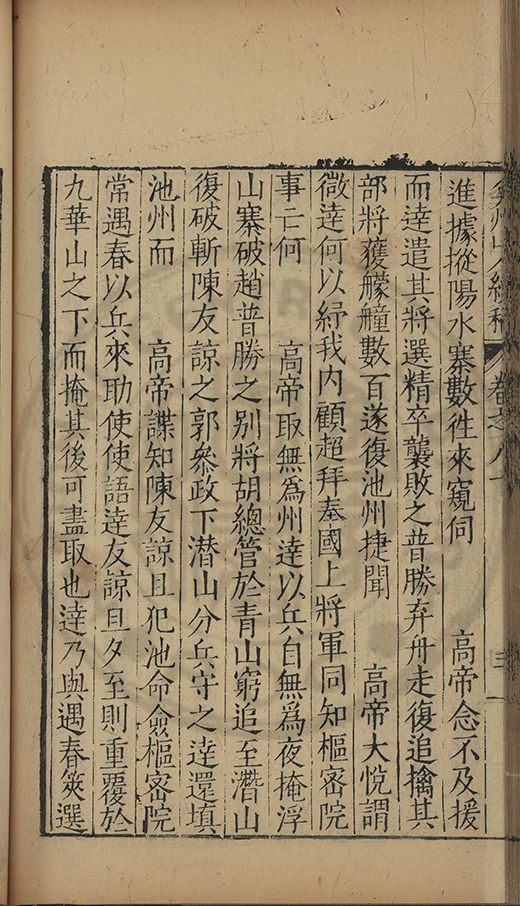 弇州山人續稿 卷之八十 三
進據樅陽水寨數徃來窺伺 高帝念不及援
而達遣其將選精卒襲敗之普勝弃舟走復追擒其
部將獲艨艟數百遂復池州捷聞 高帝大悅謂
微達何以紓我内顧超拜奉國上將軍同知樞密院
事亡何 高帝取無爲州達以兵自無爲夜掩浮
山寨破趙普勝之别將胡總管於青山窮追至濳山
復破斬陳友諒之郭叅政下潜山分兵守之達還填
池州而 高帝諜知陳友諒且犯池命僉樞密院
常遇春以兵來助使使語達友諒旦夕至則重覆於
九華山之下而掩其後可盡取也達乃與遇春筴選